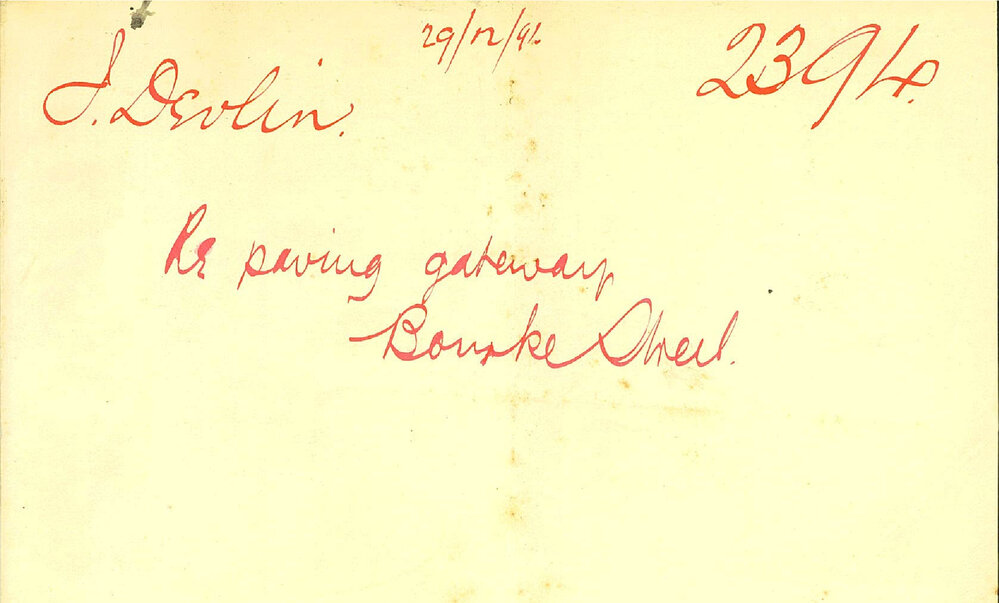 29/12/94
J. Devlin.
2394.
Re paving gateway,
Bourke Street.